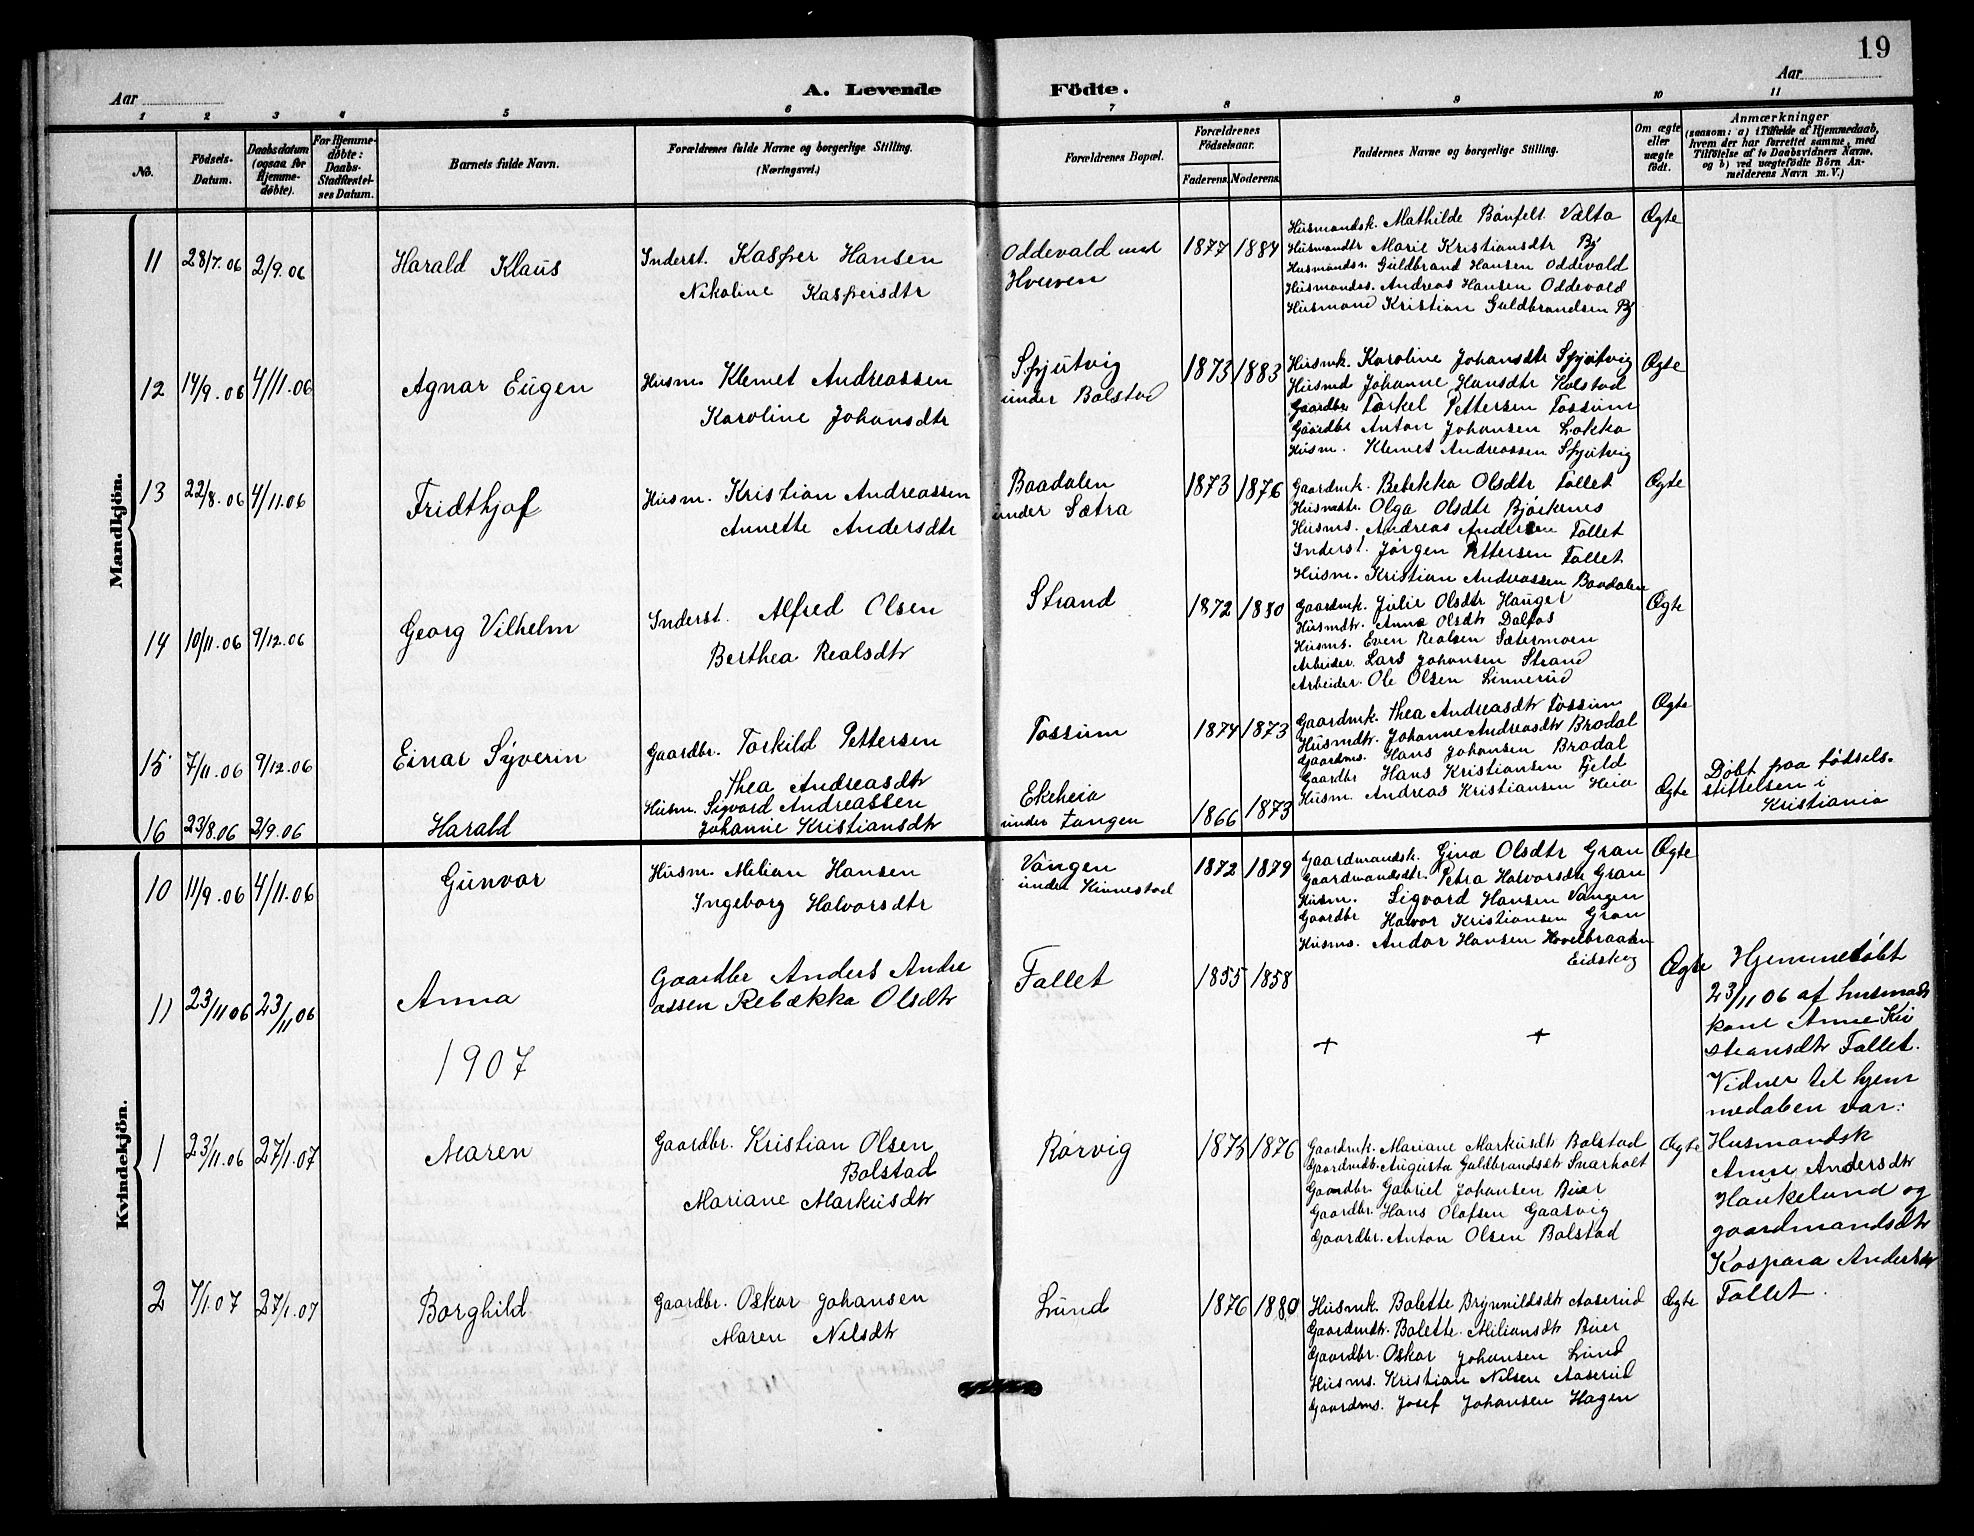 19
Aar
A. Levende Födte.
Aar
1 2 3 4 5 6 7 8 9 10 11
No.
Födsels-Datum.
Daabsdatum (ogsaa for Hjemmedöbte).
For Hjemmedøbte: Daabs-Stadfæstelses Datum.
Barnets fulde Navn.
Forældrenes fulde Navne og borgerlige Stilling.
(Næringsvei.)
Forældrenes Bopæl.
Forældrenes Födselsaar.
Faderens. Moderens.
Faddernes Navne og borgerlige Stilling.
Om ægte eller uægte födt.
Anmærkninger
(saasom: a) i Tilfælde af Hjemmedaab, hvem der har forrettet samme, med Tilföielse af to Daabsvidners Navne, og b) ved uægtefödte Börn Anmelderens Navn m. V.)
Mandkjön.
11 28/7.06 2/9.06 Harald Klaus
Inderst. Kasper Hansen
Nikoline Kaspersdtr
Oddevald
Hveven
1877 1884
Husmandsk. Mathilde Bønfelt Vælta
Husmandtr Marie Kristiansdtr By
Husmands. Guldbrand Hansen Oddevald
Husmands. Andreas Hansen Oddevald
Husmand Kristian Guldbrandsen By
Ægte
12 14/9.06 4/11.06 Agnar Eugen
Husm. Klemet Andreassen
Karoline Johansdtr
Spjutvig
under Bolstad
1873 1883
Husmk. Karoline Johansdtr Spjutvig
Husmd Johanne Hansdtr Kolstad
Gaardbr Torkel Pettersen Tossum
Gaardbr Anton Johansen Lokka
Husm. Klemet Andreassen Spjutvig
Ægte
13 22/8.06 4/11.06 Fridthjof
Husm. Kristian Andreassen
Annette Andersdtr
Baadalen
under Sætra
1873 1876
Gaardmk. Rebekka Olsdtr Fallet
Husmdtr. Olga Olsdtr Bjørkenes
Husms. Andreas Andersen Fallet
Inderst. Jørgen Pettersen Fallet
Husm. Kristian Andreassen Baadalen
Ægte
14 10/11.06 9/12.06 Georg Vilhelm
Inderst. Alfred Olsen
Berthea Realsdtr
Strand
1872 1880
Gaardmk. Julie Olsdtr Hauger
Husmdtr. Anna Olsdtr Dalfos
Husms. Even Realsen Sætermoen
Arbeider. Lars Johansen Strand
Arbeider. Ole Olsen Linnerud
Ægte
15 7/11.06 9/12.06 Einar Syverin
Gaardbr. Torkild Pettersen
Thea Andreasdtr
Tossum
1874 1873
Gaardmk. Thea Andreasdtr Tossum
Husmdtr. Johanne Andreasdtr Brodal
Gaardms. Hans Johansen Brodal
Gaardbr Hans Kristiansen Fjeld
Husm. Andreas Kristiansen Heia
Ægte
16 23/8.06 2/9.06 Harald
Husm. Sigvard Andreassen
Johanne Kristiansdtr
Ekeheia
under Tangen
1866 1873
Ægte
Døbt paa fødsels-
stiftelsen i
Kristiania
Kvindekjön.
10 11/9.06 4/11.06 Gunvor
Husm. Milian Hansen
Ingeborg Halvorsdtr
Vangen
under Kinnestad
1872 1879
Gaardmandsk. Gina Olsdtr Gran
Gaardmandsdtr. Petra Halvorsdtr Gran
Husm. Sigvard Hansen Vangen
Gaardbr Halvor Kristiansen Gran
Husms. Andor Hansen Hovelbraaten
Eidskog
Ægte
11 23/11 06 23/11 06 Anna
Gaardbr Anders Andre
assen Rebækka Olsdtr
Fallet
1855 1858
+ +
Ægte
Hjemmedøbt
23/11 06 af husmands
kone Anne Kri
stiansdtr Fallet.
Vidner til hjem
medaben var:
Husmandsk
Anne Andersdtr
Haukelund og
gaardmandsdtr
Kaspara Andersdtr
Fallet.
1907
1 23/11.06 27/1.07 Maren
Gaardbr. Kristian Olsen
Bolstad
Mariane Markusdtr
Rørvig
1875 1876
Gaardmk. Mariane Markusdtr Bolstad
Gaardmdtr. Augusta Guldbrandsdtr Snarholt
Gaardbr Gabriel Johansen Buer
Gaardbr. Hans Olafsen Gaasvig
Gaardbr. Anton Olsen Bolstad
Ægte
2 7/1.07 27/1.07 Borghild
Gaardbr. Oskar Johansen
Maren Nilsdtr
Lund
1876 1880
Husmk. Bolette Brynnildsdtr Aaserud
Gaardmdtr. Bolette Miliansdtr Buer
Gaardbr. Oskar Johansen Lund
Husms. Kristian Nilsen Aaserud
Gaardms. Josef Johansen Hagen
Ægte